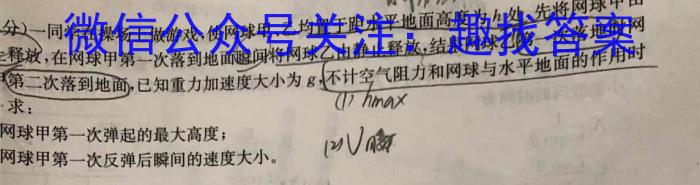 分)一同
微信公众号关注:趣找答案
释放,在网球甲第一次落到地面瞬间将网球乙由静止释放,结
第二次落到地面,已知重力加速度大小为g,不计空气阻力和网球与水平地面的作用时
求:
(1) hmax
网球甲第一次弹起的最大高度;
(2) V瞬
网球甲第一次反弹后瞬间的速度大小。